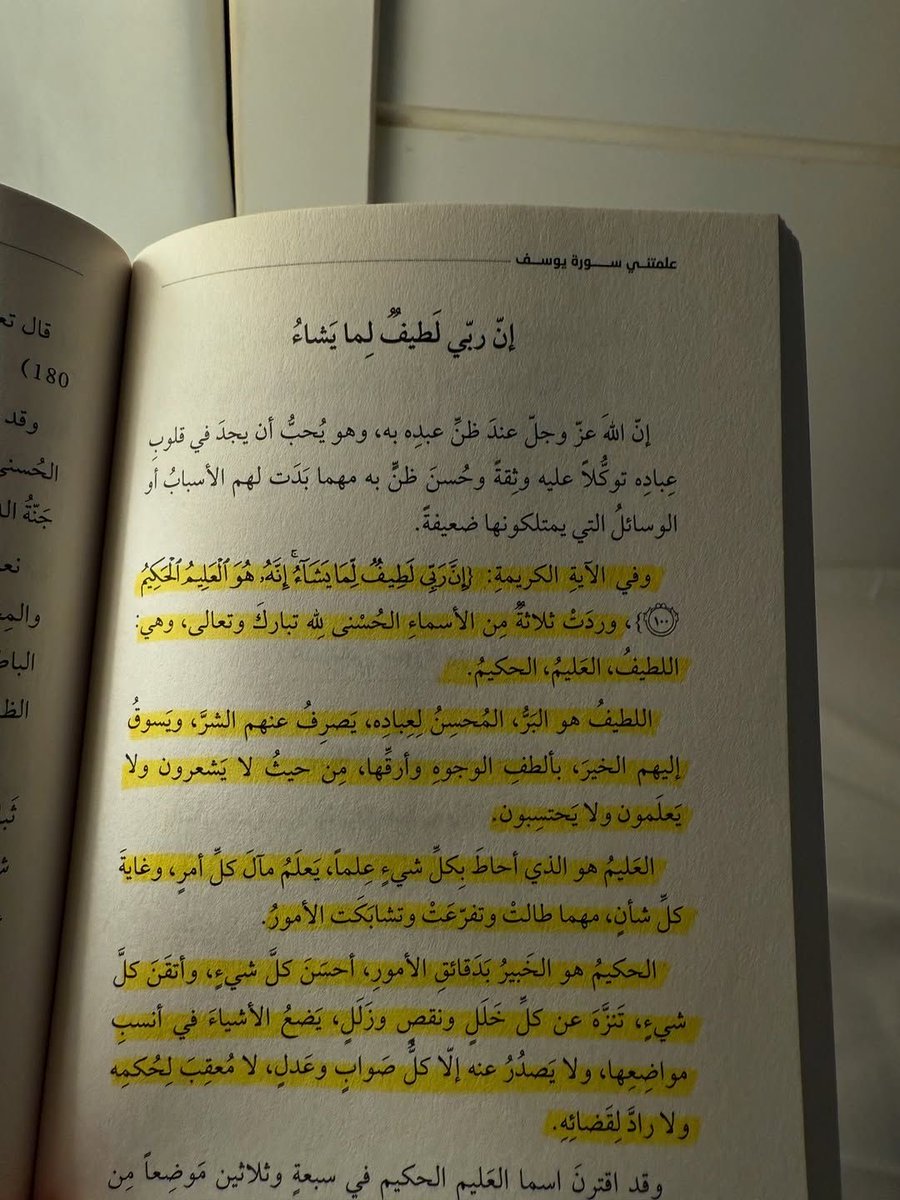 علمتني ســورة يوسـف
إنّ ربّي لَطيفٌ لِما يَشاءُ
إنّ اللهَ عزّ وجلّ عندَ ظنِّ عبدِه به، وهو يُحبُّ أن يجدَ في قلوبِ
عِبادِه توكُّلاً عليه وثِقةً وحُسنَ ظنٍّ به مهما بَدَت لهم الأسبابُ أو
الوسائلُ التي يمتلكونها ضعيفةً.
وفي الآيةِ الكريمةِ: {إِنَّ رَبِّي لَطِيفٌ لِّمَا يَشَآءُ ۚ إِنَّهُۥ هُوَ ٱلْعَلِيمُ ٱلْحَكِيمُ
١٠٠}، وردَتْ ثلاثةٌ مِن الأسماءِ الحُسْنى لِله تباركَ وتعالى، وهي:
اللطيفُ، العَليمُ، الحكيمُ.
اللطيفُ هو البَرُّ، المُحسِنُ لِعِبادِه، يَصرِفُ عنهم الشرَّ، ويَسوقُ
إليهم الخيرَ، بألطفِ الوجوهِ وأرقِّها، مِن حيثُ لا يَشعرون ولا
يَعلَمون ولا يَحتسِبون.
العَليمُ هو الذي أحاطَ بِكلِّ شيءٍ عِلماً، يَعلَمُ مآلَ كلِّ أمرٍ، وغايةَ
كلِّ شأنٍ، مهما طالتْ وتفرّعَتْ وتشابَكَت الأمورُ.
الحكيمُ هو الخَبيرُ بَدَقائقِ الأمورِ، أحسَنَ كلَّ شيءٍ، وأتقَنَ كلَّ
شيءٍ، تَنزَّهَ عن كلِّ خَلَلٍ ونقصٍ وزَلَلٍ، يَضعُ الأشياءَ في أنسبِ
مواضِعِها، ولا يَصدُرُ عنه إلّا كلُّ صَوابٍ وعَدلٍ، لا مُعقِبَ لِحُكمِه
ولا رادَّ لِقَضائِهِ.
وقد اقترنَ اسما العَليم الحكيم في سبعةٍ وثلاثين مَوضِعاً مِن
قال
180)
وقد